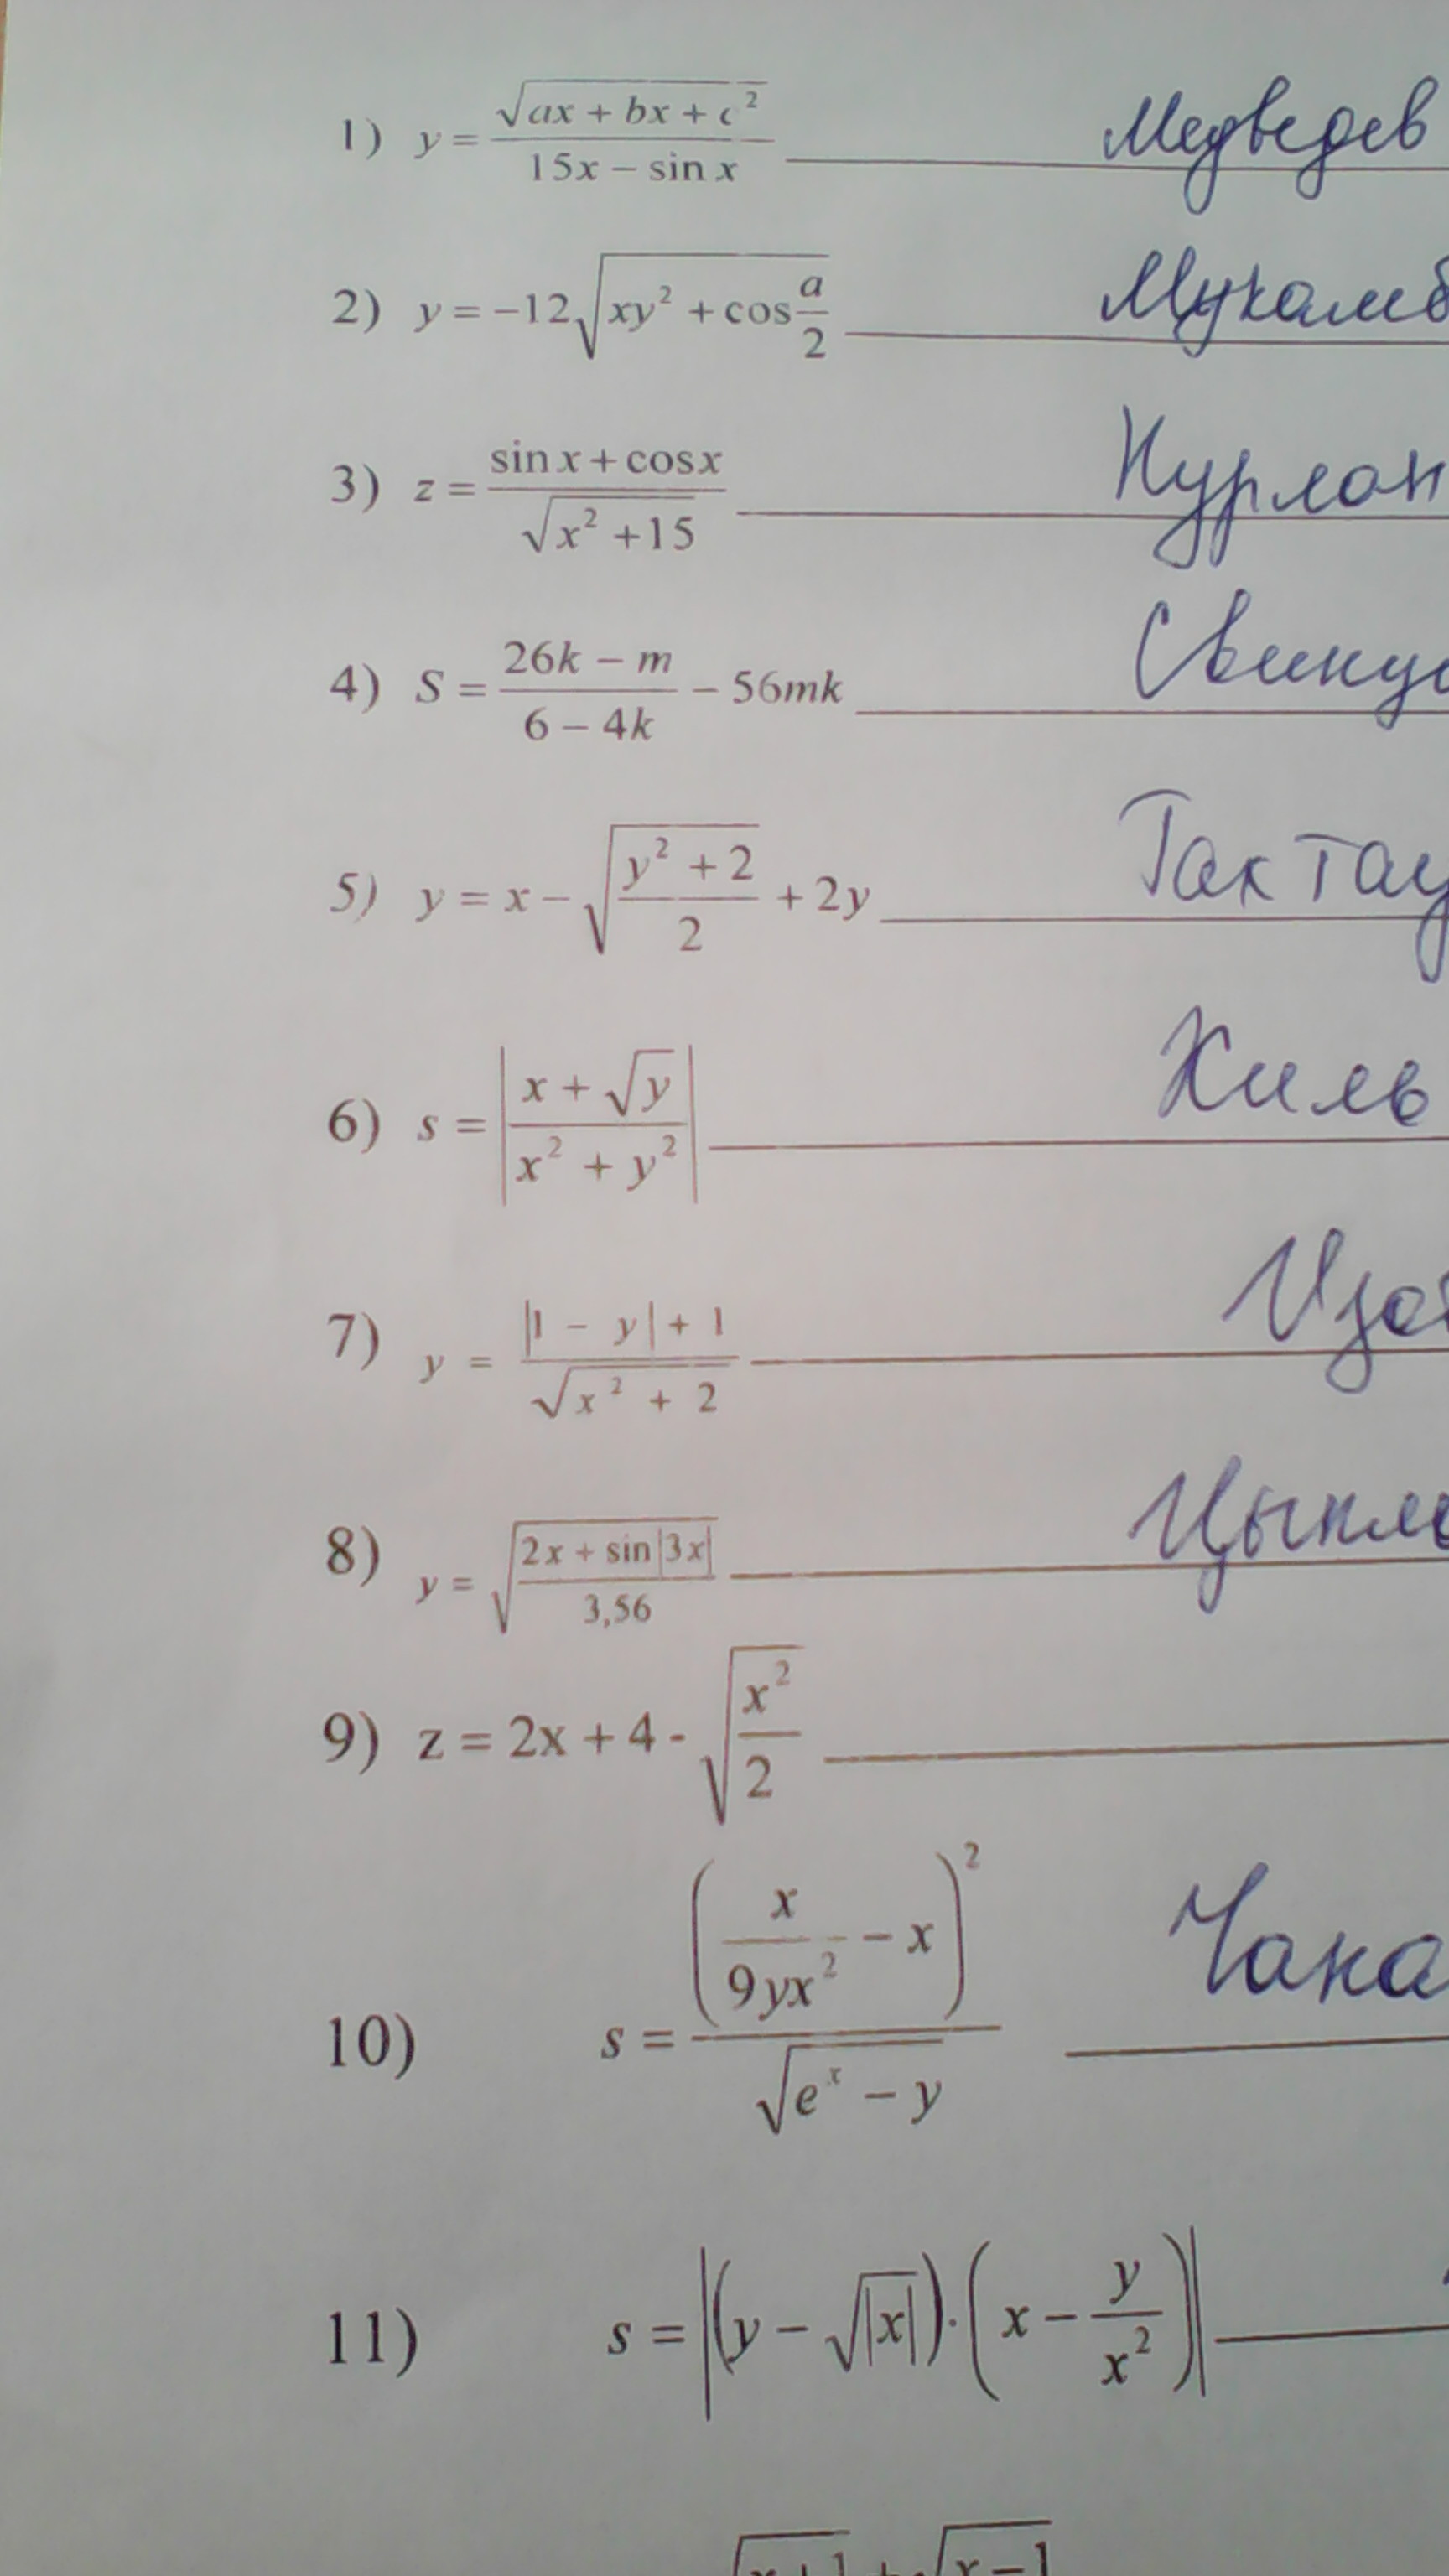 1) y = √(ax + bx + c²) / (15x − sin x) Медведев
2) y = −12√(xy² + cos a/2) Мухамб
3) z = (sin x + cos x) / √(x² + 15) Нурлан
4) S = (26k − m) / (6 − 4k) − 56mk
5) y = x − √((y² + 2) / 2) + 2y Тактау
6) s = |(x + √y) / (x² + y²)| Хиль
7) y = (|1 − y| + 1) / √(x² + 2)
8) y = √((2x + sin|3x|) / 3,56) Цыпл
9) z = 2x + 4 - √(x² / 2)
10) s = (x / 9yx² − x)² / √(eˣ − y) Чака
11) s = |(y − √|x|) · (x − y / x²)|
√(x + 1) + √(x − 1)